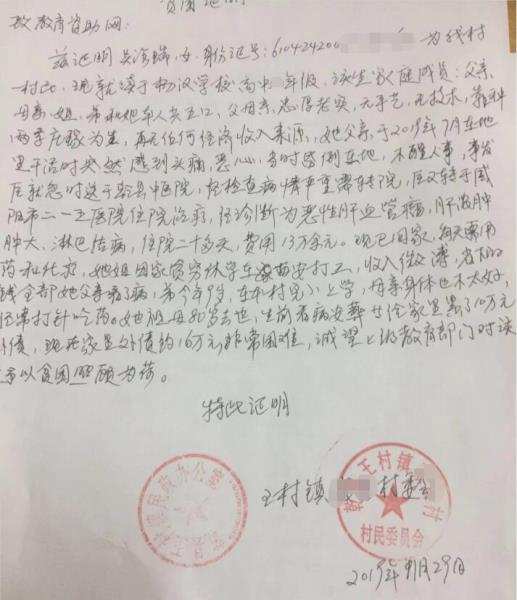 贫困证明
致教育资助网：
兹证明吴 瑞，女，身份证号：610424200 为我村
村民，现就读于 汉学校高中 年级，该生家庭成员：父亲、
母亲、姐、弟和她本人共五口，父母亲忠厚老实，无手艺，无技术，靠种
两季庄稼为生，再无任何经济收入来源，她父亲于2019年7月在地
里干活时突然感到头痛，恶心，当时晕倒在地，不醒人事，事发
后就急时送于乾县中医院，经检查病情严重需转院，后又转于咸
阳市二一五医院住院治疗，经诊断为恶性肝血管瘤，肝 肿
肿大，淋巴结病，住院二十多天，费用13万余元。现已回家，每天需用
药和化疗，她姐因家贫穷休学在西安打工，收入微薄，省下的
钱全部她父亲看了病，弟今年 岁，在本村完小上学，母亲身体也不太好，
经常打针吃药。她祖母80岁去世，生前看病安葬廿给家里累了10万元
外债，现在家里外债约16万元，非常困难，诚望上级教育部门对该
生以贫困照顾为荷。
特此证明
王村镇 村委会
民政办公室
乾 王村镇 村
村民委员会
2019年 月29日